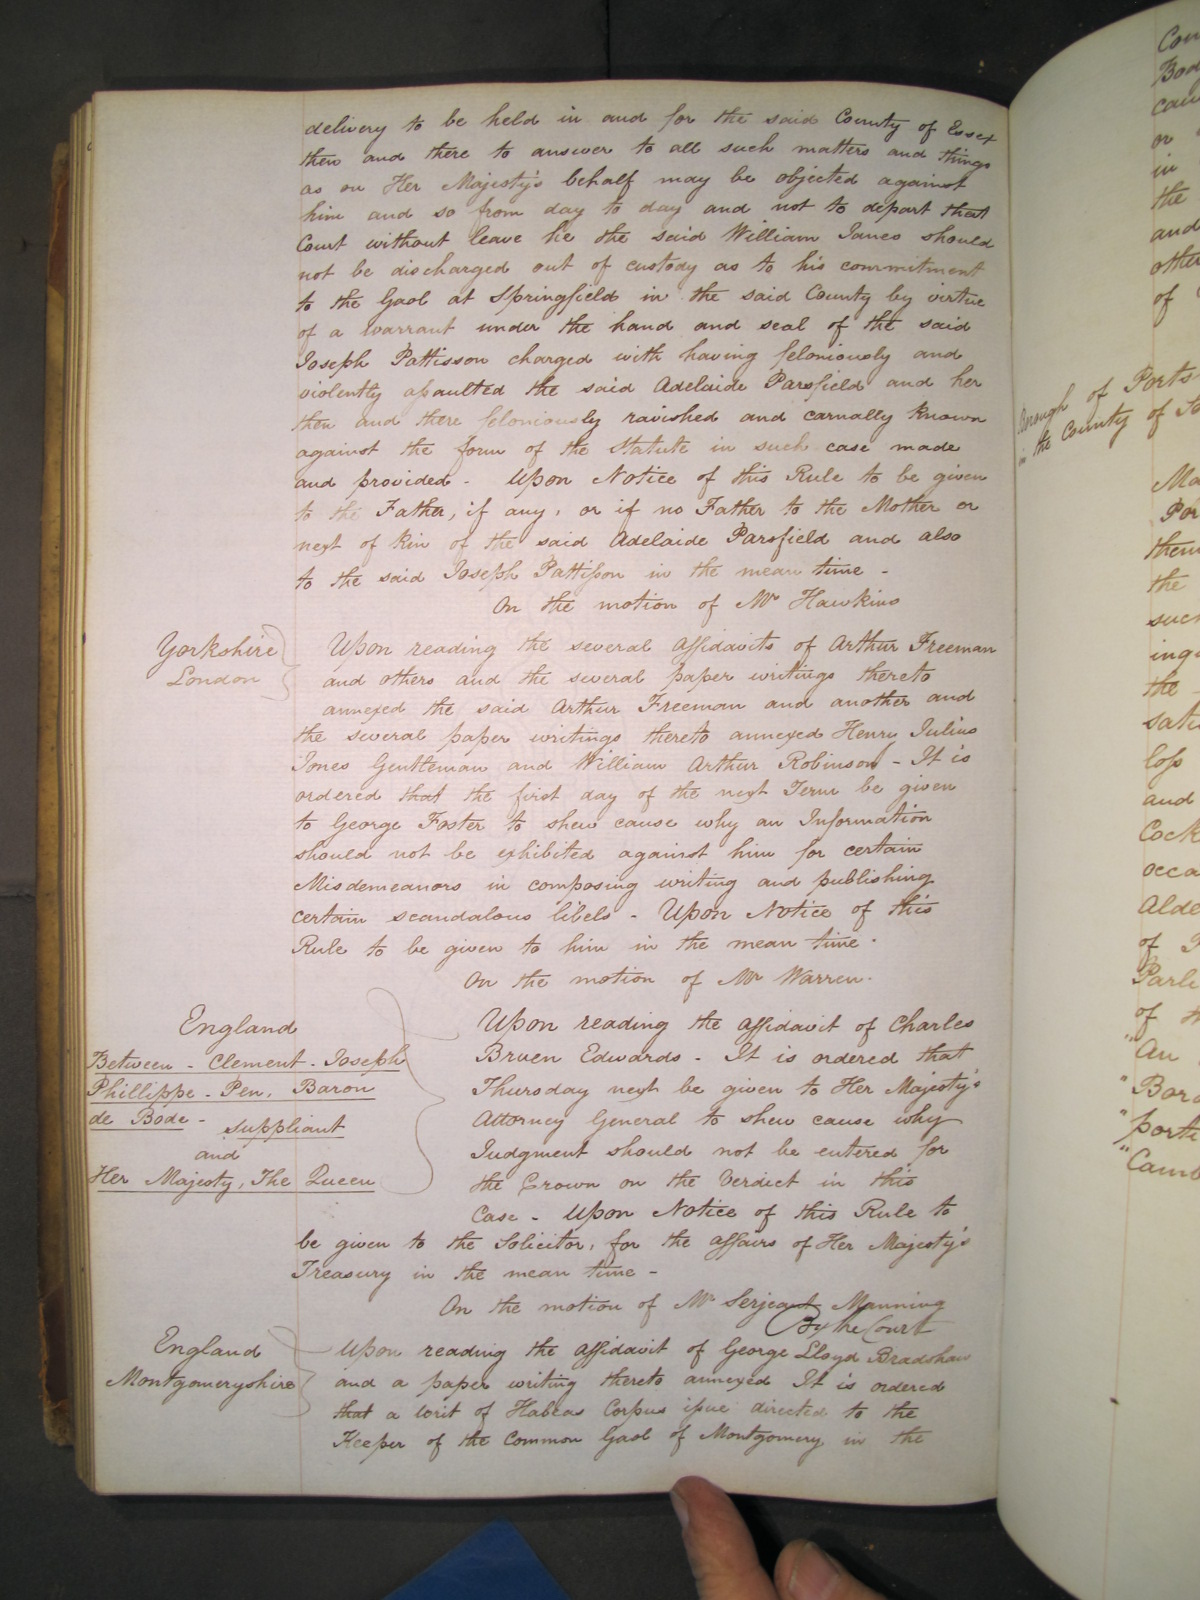 delivery to be held in and for the said County of Essex
then and there to answer to all such matters and things
as on Her Majesty's behalf may be objected against
him and so from day to day and not to depart that
Court without leave he the said William Janes should
not be discharged out of custody as to his commitment
to the Gaol at Springfield in the said County by virtue
of a warrant under the hand and seal of the said
Joseph Pattisson charged with having feloniously and
violently assaulted the said Adelaide Parsfield and her
then and there feloniously ravished and carnally known
against the form of the Statute in such case made
and provided - Upon Notice of this Rule to be given
to the Father, if any, or if no Father to the Mother or
next of Kin of the said Adelaide Parsfield and also
to the said Joseph Pattisson in the mean time -
On the motion of Mr Hawkins
Yorkshire
London
Upon reading the several affidavits of Arthur Freeman
and others and the several paper writings thereto
annexed the said Arthur Freeman and another and
the several paper writings thereto annexed Henry Julius
Jones Gentleman and William Arthur Robinson - It is
ordered that the first day of the next Term be given
to George Foster to shew cause why an Information
should not be exhibited against him for certain
Misdemeanors in composing writing and publishing
certain scandalous libels - Upon Notice of this
Rule to be given to him in the mean time -
On the motion of Mr Warren -
England
Between - Clement - Joseph
Phillippe - Pen, Baron
de Bode - suppliant
and
Her Majesty, The Queen
Upon reading the affidavit of Charles
Bruen Edwards - It is ordered that
Thursday next be given to Her Majesty's
Attorney General to shew cause why
Judgment should not be entered for
the Crown on the Verdict in this
Case - Upon Notice of this Rule to
be given to the Solicitor, for the affairs of Her Majesty's
Treasury in the mean time -
On the motion of Mr Serjeant Manning
By the Court
England
Montgomeryshire
Upon reading the affidavit of George Lloyd Bradshaw
and a paper writing thereto annexed It is ordered
that a writ of Habeas Corpus issue directed to the
Keeper of the Common Gaol of Montgomery in the
Borough of Ports
in the County of
or
in
the
and
of
the
the
loss
and
of
of
"An